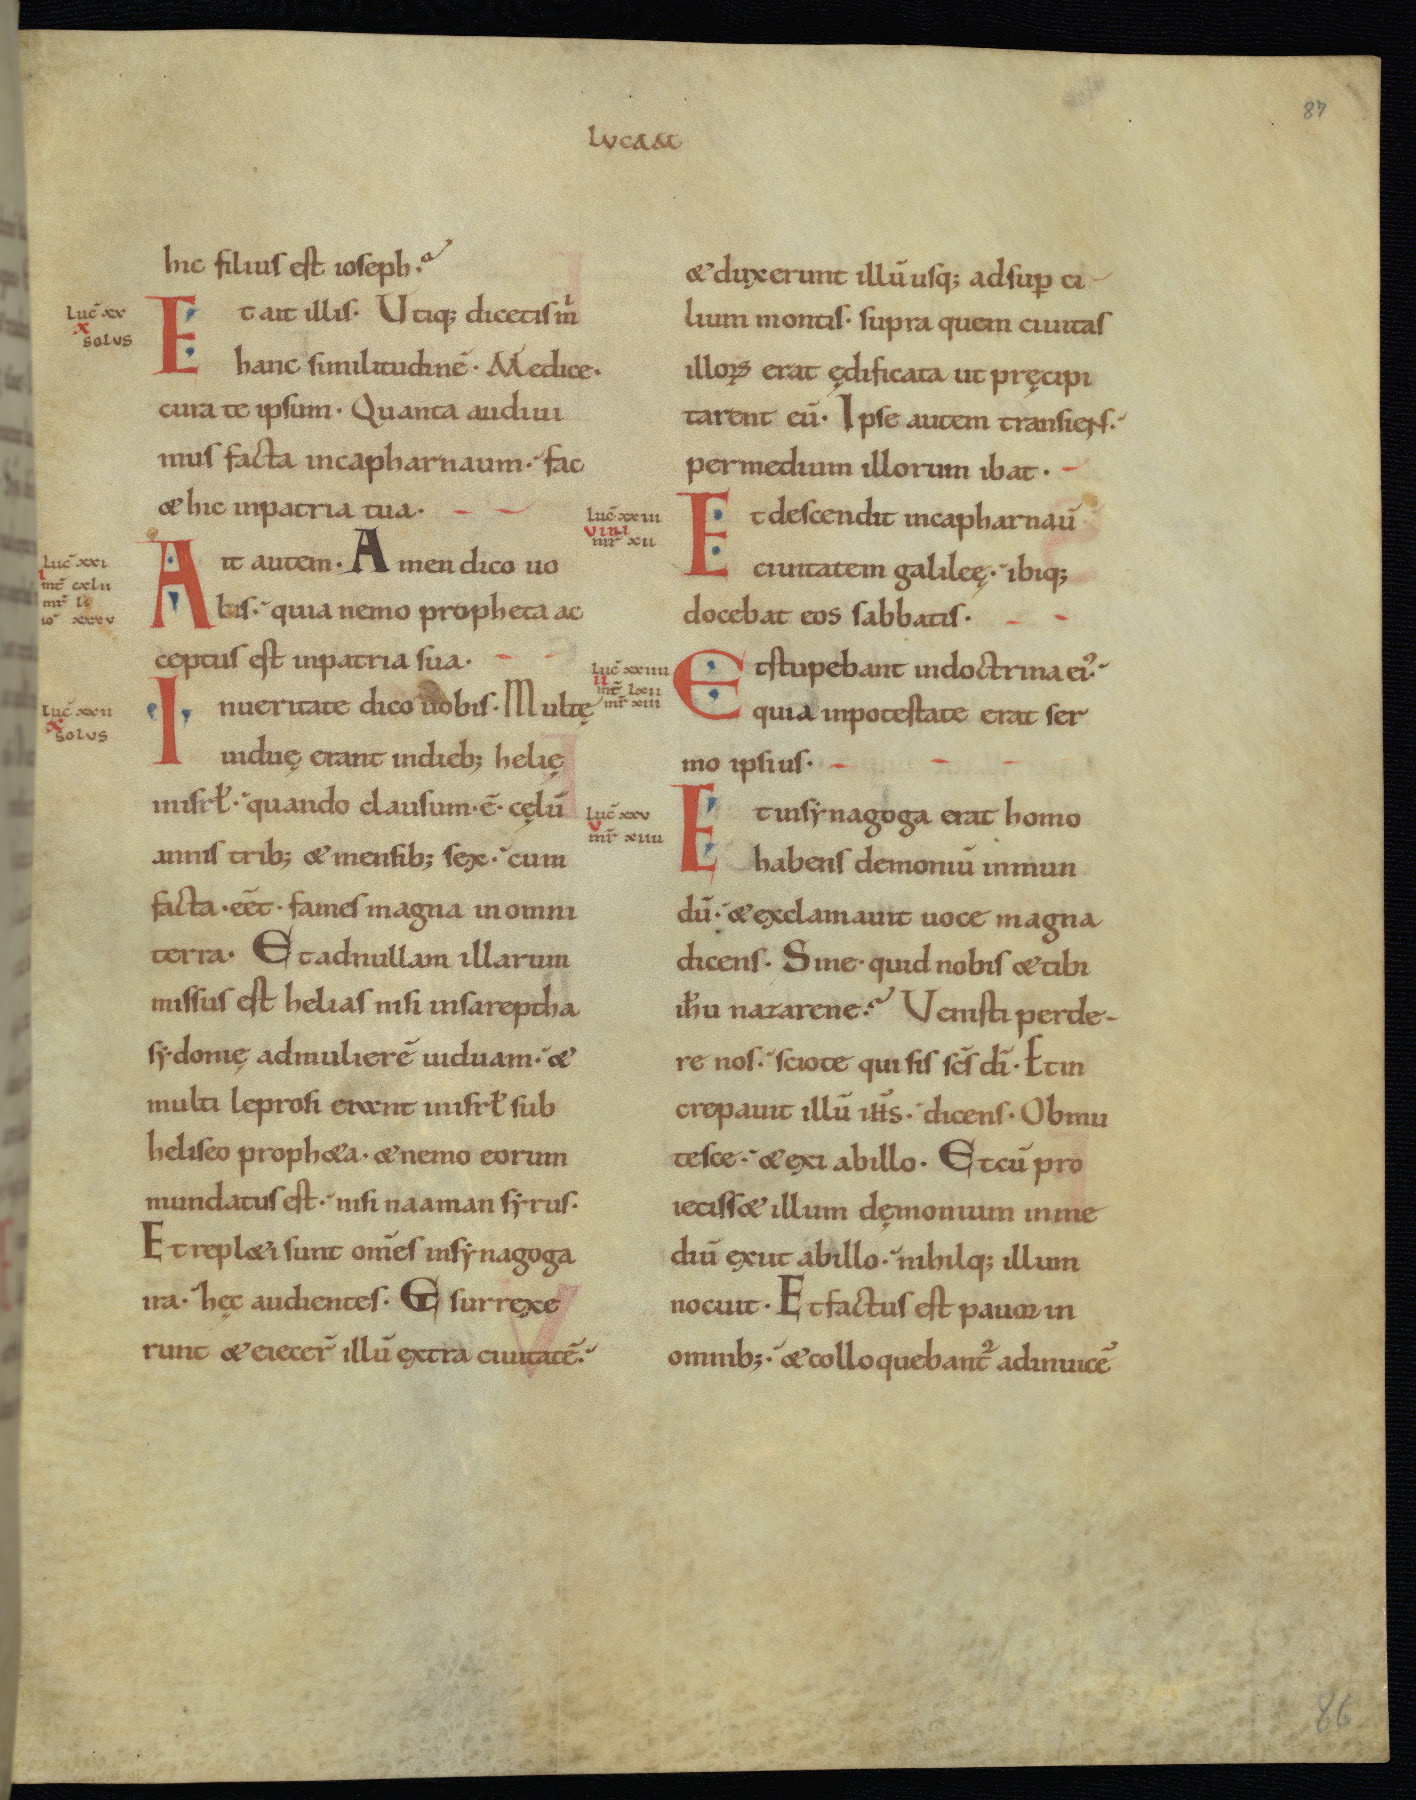 87
LUCAM
hic filius est ioseph.
Luc̄ xx
x
solus
Et ait illis. Utiq; dicetis m̄
hanc similitudinē. Medice.
cura te ipsum. Quanta audiui
mus facta incapharnaum. fac
& hic inpatria tua.
Luc̄ xxi
mt̄ cxlii
io xxxv
Ait autem. Amen dico uo
bis. quia nemo propheta ac
ceptus est inpatria sua.
Luc̄ xxii
x
solus
Inueritate dico uobis. Multę
uiduę erant indieb; helię
inisrł. quando clausum. ē. cęlū
annis trib; & mensib; sex. cum
facta. eēt. fames magna inomni
terra. Et adnullam illarum
missus est helias nisi insareptha
sydonię admulierē uiduam. &
multi leprosi erant inisrł sub
heliseo proph&a. & nemo eorum
mundatus est. nisi naaman syrus.
Et repl&i sunt om̄es insynagoga
ira. hęc audientes. Et surrexe
runt & eiecer̄ illū extra ciuitatē.
& duxerunt illū usq; adsup̄ ci-
lium montis. supra quem ciuitas
illoꝝ erat ędificata ut pręcipi
tarent eū. Ipse autem transiens.
permedium illorum ibat.
Luc̄ xxiii
viii
mr̄ xii
Et descendit incapharnaū
ciuitatem galileę. ibiq;
docebat eos sabbatis.
Luc̄ xxiiii
ii
mt̄ lxii
mr̄ xiii
Et stupebant indoctrina ei᾽.
quia inpotestate erat ser
mo ipsius.
Luc̄ xxv
v
mr̄ xiiii
Et insynagoga erat homo
habens demoniū inmun
dū. & exclamauit uoce magna
dicens. Sine. quid nobis & tibi
ih̄u nazarene. Uenisti perde-
re nos. scio te qui sis sc̄s dī. Et in
crepauit illū ih̄s. dicens. Obmu
tesce. & exi abillo. Et cū pro
ieciss& illum dęmonium inme
diū exiit abillo. nihilq; illum
nocuit. Et factus est pauor in
omnib;. & colloquebant᾽ adinuicē
86